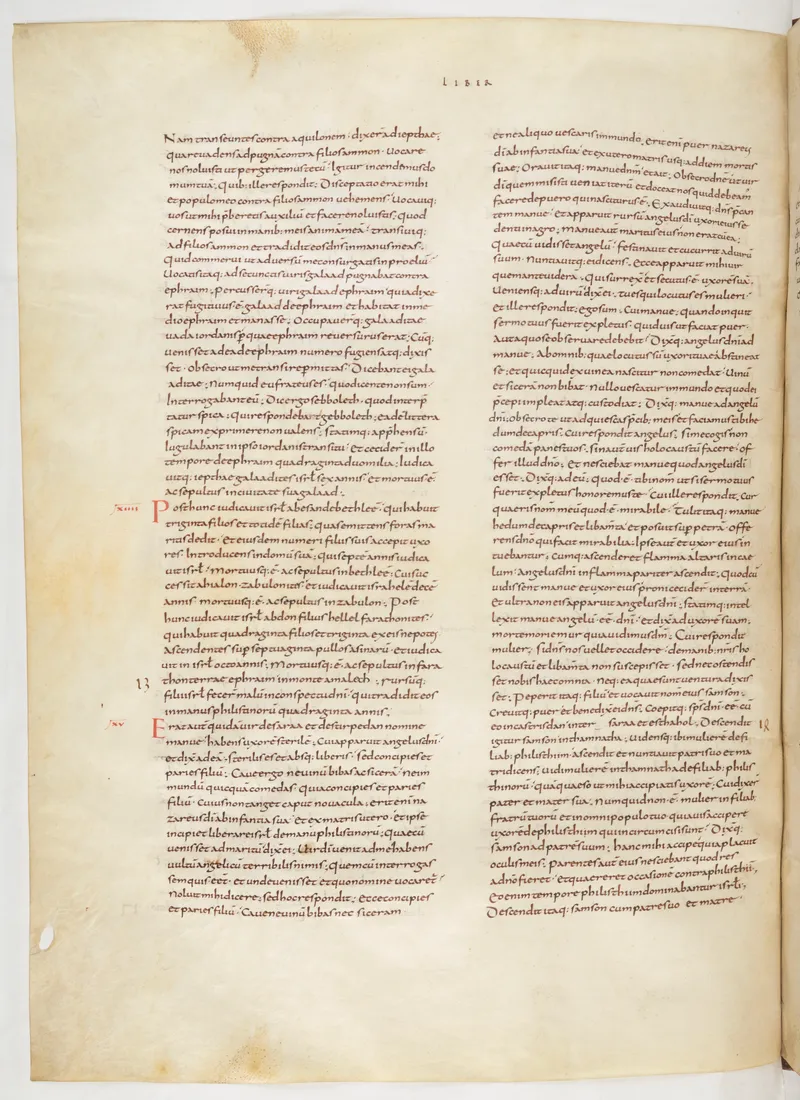 LIBER
Nam transeuntes contra aquilonem · dixer̄ ad iepthae;
quare uadens ad pugnā contra filios ammon · Uocare
nos noluisti ut pergeremus tecū · Igitur incendimus do
mum tuā; Quib; ille respondit; Disceptatio erat mihi
et populo meo contra filios ammon uehemens · Uocauiq;
uos ut mihi p̄beretis auxiliū et facere noluistis; quod
cernens posui in manib; meis animā meā · transiuiq;
ad filios ammon et tradidit eos dn̄s in manus meas;
Quid commerui ut aduersū me consurgatis in proeliū ·
Uocatis itaq; ad se cunctis uiris galaad pugnabat contra
ephraim; Percusserq; uiri galaad ephraim quia dixe
rat fugitiuus · ē · galaad de ephraim et habitat in me
dio ephraim et manasse; Occupauerq; galaaditae
uada iordanis p quae ephraim reuersurus erat; Cūq;
uenisset ad ea de ephraim numero fugiens atq; dixis
set · obsecro ut me transire pmittas; Dicebant ei gala
aditae; Numquid eufrateus es · quo dicente non sum ·
Interrogabant eū; Dic ergo sebboleth · quod interp̄
tatur spica; qui respondebat tebboleth; eadē littera
spicam exprimere non ualens; statimq; app̄hensū
iugulabant in ipso iordanis transitu · Et cecider in illo
tempore de ephraim quadraginta duo milia; Iudica
uitq; iepthae galaadites isrl sex annis · et mortuus · ē ·
ac sepultus in ciuitate sua galaad;
xiiii Post hunc iudicauit isrl abesan de bethleē; qui habuit
triginta filios et totidē filias; quas emittens foras ma
ritis dedit · et eiusdem numeri filiis suis accepit uxo
res · Introducens in domū suā; qui septē annis iudica
uit isrl · Mortuusq; ē · ac sepultus in bethleē; Cui suc
cessit ahialon · zabulonites · et iudicauit israhelē decē
annis · mortuusq; ē · ac sepultus in zabulon; Post
hunc iudicauit isrl abdon filius hellel faracthonites ·
qui habuit quadraginta filios et triginta ex eis nepotes
ascendentes sup septuaginta pullos asinarū · et iudica
uit in isrl octo annis; Mortuusq; ē · ac sepultus in fara
13 thon terrae ephraim in monte amalech; Rursūq;
filii isrl fecer malū in conspectu dn̄i · qui tradidit eos
in manus philistinorū quadraginta annis;
xv Erat aut quidā uir de saraa et de stirpe dan nomine
manue · habens uxorē sterilē; Cui apparuit angelus dn̄i
et dixit ad eā; sterilis es et absq; liberis · sed concipies et
paries filiū · Caue ergo ne uinū bibas ac sicerā · ne in
mundū quicquā comedas · quia concipies et paries
filiū · Cuius non tanget caput nouacula; erit eni na
zareus di ab infantia sua · et ex matris utero · et ipse
incipiet liberare isrl de manu philistinorū; quae cū
uenisset ad maritū dixit ei; Uir di uenit ad me habens
uultū angelicū terribilis nimis; Quem cū interrogas
sem quis eet · et unde uenisset et quo nomine uocaret
noluit mihi dicere; sed hoc respondit; ecce concipies
et paries filiū · Caue ne uinū bibas nec siceram
et ne aliquo uescaris inmundo; erit eni puer nazareus
di ab infantia sua et ex utero matris usq; ad diem mortis
suae; Orauit itaq; manue dnm̄ et ait; Obsecro dn̄e ut uir
di quem misisti ueniat iterū et doceat nos quid debeam
facere de puero qui nasciturus · ē; Exaudiuitq; dn̄s p̄can
tem manue · et apparuit rursū angelus di uxori eius se
denti in agro; manue aut maritus eius non erat cū ea;
Quae cū uidisset angelū · festinauit et cucurrit ad uirū
suum · nuntiauitq; ei dicens; ecce apparuit mihi uir
quem ante uiderā · Qui surrexit et secutus · ē · uxorē suā;
ueniensq; ad uirū dixit ei; tu es qui locutus es mulieri ·
et ille respondit; ego sum; Cui manue; quando inquit
sermo tuus fuerit expletus; quid uis ut faciat puer ·
aut a quo se obseruare debebit · Dixitq; angelus dn̄i ad
manue; Ab omnib; quae locutus sū uxori tuae abstineat
se; et quicquid ex uinea nascitur non comedat · Uinū
et sicerā non bibat · nullo uescatur inmundo et quod ei
p̄cepi impleat atq; custodiat; Dixitq; manue ad angelū
dn̄i; obsecro te ut adquiescas p̄cib; meis et faciamus tibi he
dum de capris; Cui respondit angelus; si me cogis non
comedā panes tuos; Sin aut uis holocaustū facere · of
fer illud dno; et nesciebat manue quod angelus di
esset; Dixitq; ad eū; quod · ē · tibi nom ut si sermo tuus
fuerit expletus honoremus te · Cui ille respondit; Cur
quaeris nom meū quod · ē · mirabile · Tulit itaq; manue
hedum de capris et libamta et posuit sup petrā · Offe
rens dno qui facit mirabilia; Ipse aut et uxor eius in
tuebantur; Cumq; ascenderet flamma altaris in cae
lum · Angelus dn̄i in flamma pariter ascendit; Quod cū
uidissent manue et uxor eius proni cecider in terrā ·
et ultra non eis apparuit angelus dn̄i; statimq; intel
lexit manue angelū eē · dn̄i · et dixit ad uxorē suam;
morte moriemur quia uidimus dm̄; Cui respondit
mulier; si dn̄s nos uellet occidere; de manib; nris ho
locaustū et libamta non suscepisset · sed nec ostendis
set nobis haec omnia · neq; ea quae sunt uentura dixis
set; Peperit itaq; filiū et uocauit nom eius samson;
Creuitq; puer et benedixit ei dn̄s; Coepitq; sps dn̄i · eē · cū
eo in castris dan inter saraa et esthahol; Descendit
18 igitur samson in thamnatha; uidensq; ibi mulierē de fi
liab; philisthim · ascendit et nuntiauit patri suo et ma
tri dicens; uidi mulierē in thamnatha de filiab; philis
thinorū · quā quaeso ut mihi accipiatis uxorē; Cui dixer
pater et mater sua; Numquid non · ē · mulier in filiab;
fratrū tuorū et in omni populo tuo quia uis accipere
uxorē de philisthim qui incircumcisi sunt · Dixitq;
samson ad patrē suum; hanc mihi accipe quia placuit
oculis meis; parentes aut eius nesciebant quod res
a dno fieret · et quaereret occasionē contra philisthim;
Eo enim tempore philisthim dominabantur isrl;
Descendit itaq; samson cum patre suo et matre